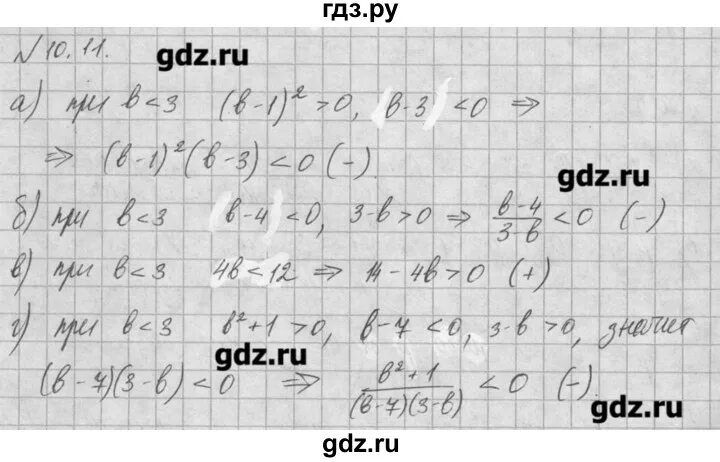 гдз.ру
№10.11. gdz.ru
а) при в<3 (в-1)² >0, (в-3) <0 ⇒
⇒ (в-1)²(в-3) <0 (-).
gdz.ru
б) при в<3 (в-4) <0, 3-в>0 ⇒ в-4/3-в <0 (-)
в) при в<3 4в<12 ⇒ 14-4в>0 (+)
г) при в<3 в²+1 >0, в-7 <0, 3-в >0, значит
gdz.ru
(в-7)(3-в) <0 ⇒ в²+1/(в-7)(3-в) <0 (-).
gdz.ru
gdz.ru